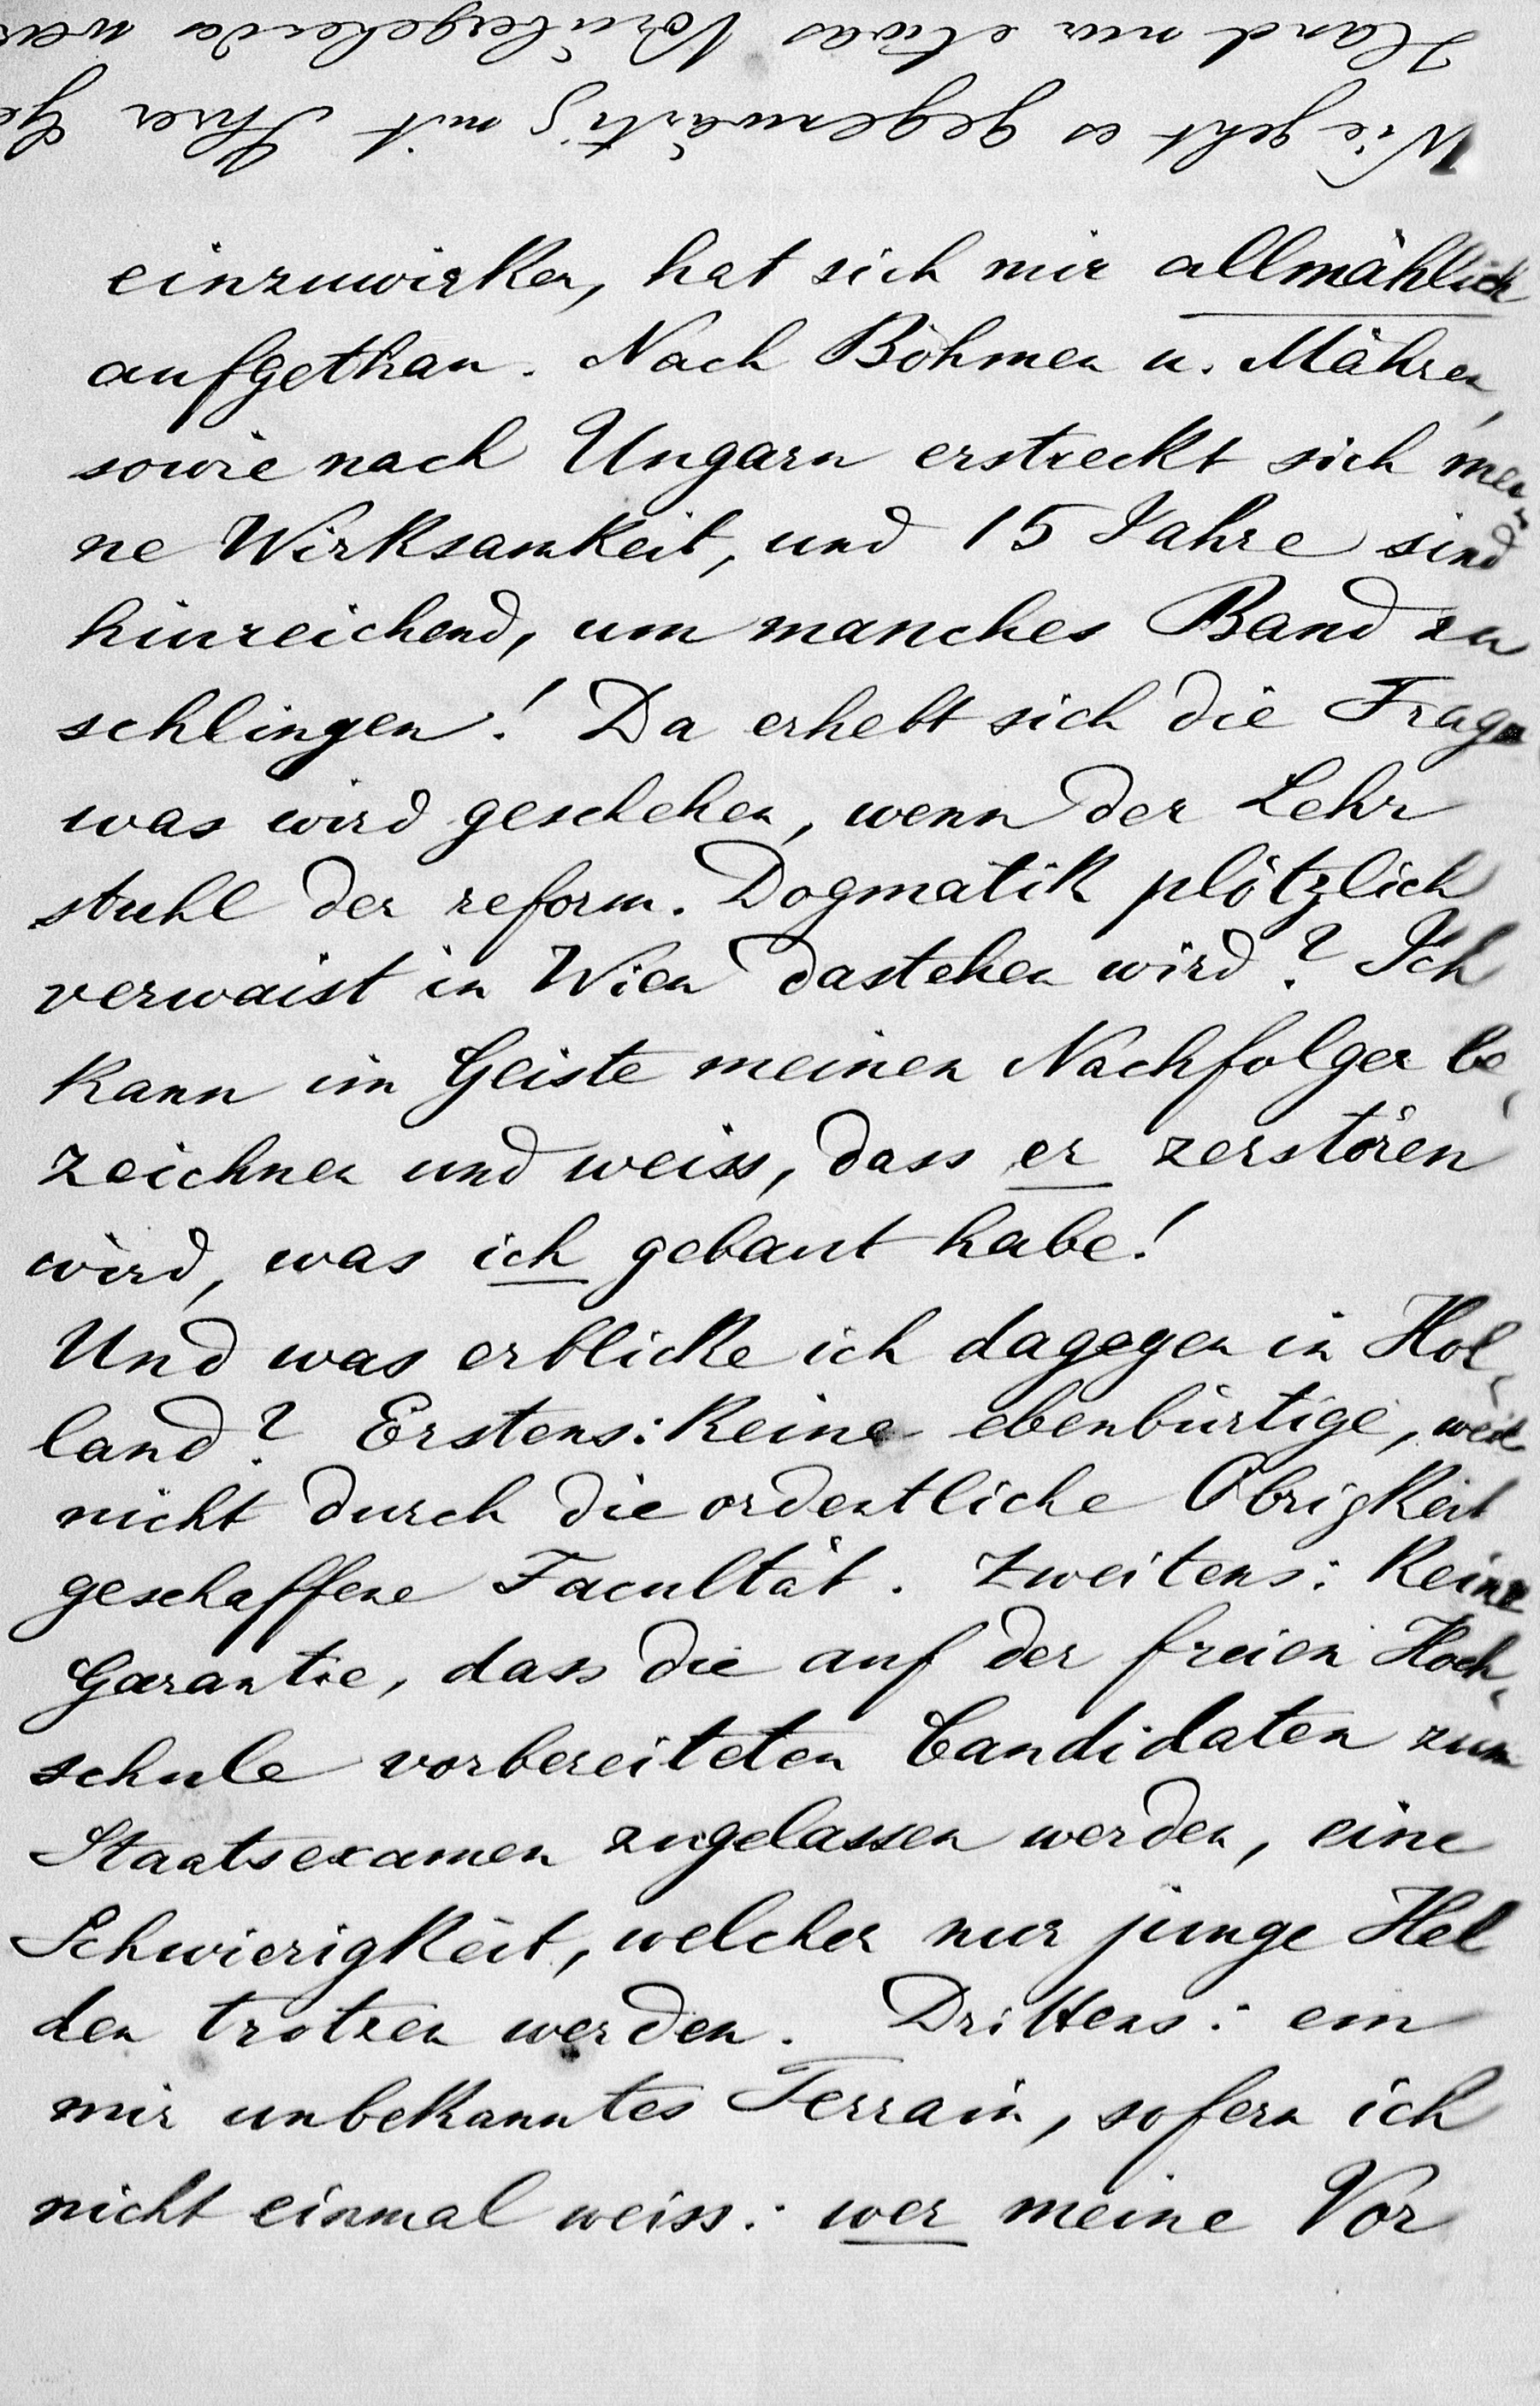 Wie geht es gegenwärtig mit Ihrer Ge
Hand nur etwas Vorübergehendes
einzuwirken, hat sich mir allmählich
aufgethan. Nach Böhmen u. Mähren,
sowie nach Ungarn erstreckt sich mei-
ne Wirksamkeit, und 15 Jahre sind
hinreichend, um manches Band zu
schlingen! Da erhebt sich die Frage
was wird geschehen, wenn der Lehr
stuhl der reform. Dogmatik plötzlich
verwaist in Wien dastehen wird? Ich
kann im Geiste meinen Nachfolger be-
zeichnen und weiss, dass er zerstören
wird, was ich gebaut habe!
Und was erblicke ich dagegen in Hol-
land? Erstens: Keine ebenbürtige, weil
nicht durch die ordentliche Obrigkeit
geschaffene Facultät. Zweitens: Keine
Garantie, dass die auf der freien Hoch-
schule vorbereiteten Candidaten zum
Staatsexamen zugelassen werden, eine
Schwierigkeit, welcher nur junge Hel
den trotzen werden. Drittens: ein
mir unbekanntes Terrain, sofern ich
nicht einmal weiss: wer meine Vor